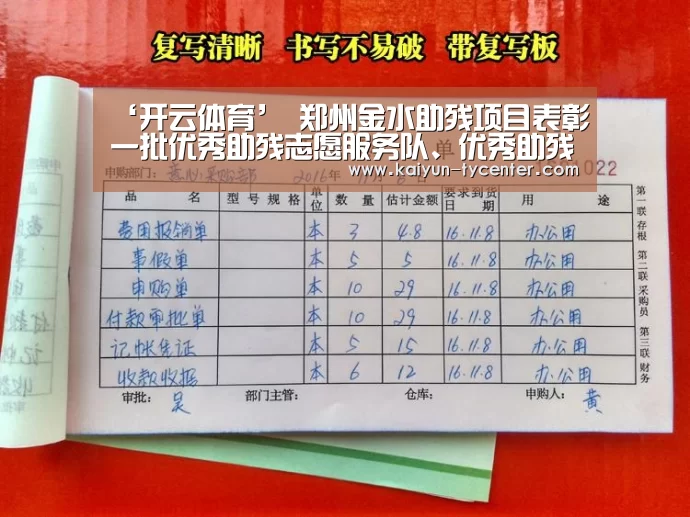 复写清晰 书写不易破 带复写板
‘开云体育’ 郑州金水助残项目表彰
一批优秀助残志愿服务队、优秀助残
www.kaiyun-tycenter.com
单
022
申购部门: 2016年
品名 型号规格 单位 数量 估计金额 要求到货日期 用途
费用报销单 本 3 4.8 16.11.8 办公用
事假单 本 5 5 16.11.8 办公用
申购单 本 10 29 16.11.8 办公用
付款审批单 本 10 29 16.11.8 办公用
记帐凭证 本 5 15 16.11.8 办公用
收款收据 本 6 12 16.11.8 办公用
审批: 吴 部门主管: 仓库: 申购人: 黄
第一联存根 第二联采购员 第三联财务